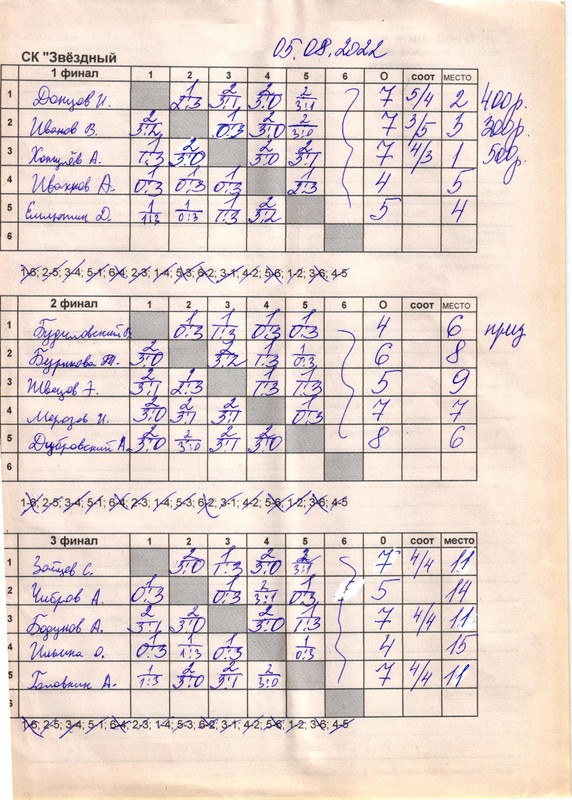 05.08.2022
СК "Звёздный
1 финал 1 2 3 4 5 6 О соот МЕСТО
1 Донцов И. 1 2:3 2 3:1 2 3:0 2 3:1 7 5/4 2 400р.
2 Иванов В. 2 3:2 1 0:3 2 3:0 2 3:0 7 3/5 3 300р.
3 А. 1 1:3 2 3:0 2 3:0 2 3:1 7 4/3 1 500р.
4 А. 1 0:3 1 0:3 1 0:3 1 2:3 4 5
5 Д. 1 1:3 1 0:3 1 1:3 2 3:2 5 4
6
1-6; 2-5; 3-4; 5-1; 6-4; 2-3; 1-4; 5-3; 6-2; 3-1; 4-2; 5-6; 1-2; 3-6; 4-5
2 финал 1 2 3 4 5 6 О соот МЕСТО
1 1 0:3 1 1:3 1 0:3 1 0:3 4 6 приз
2 2 3:0 2 3:2 1 1:3 1 0:3 6 8
3 Швецов 2 3:1 1 2:3 1 1:3 1 1:3 5 9
4 Морозов И. 2 3:0 2 3:1 2 3:1 1 0:3 7 7
5 Дубровский А. 2 3:0 2 3:0 2 3:1 2 3:0 8 6
6
1-6; 2-5; 3-4; 5-1; 6-4; 2-3; 1-4; 5-3; 6-2; 3-1; 4-2; 5-6; 1-2; 3-6; 4-5
3 финал 1 2 3 4 5 6 0 соот место
1 Зайцев С. 2 3:0 1 1:3 2 3:0 2 3:1 7 4/4 11
2 Чибров А. 1 0:3 1 0:3 2 3:1 1 0:3 5 14
3 Бодунов А. 2 3:1 2 3:0 2 3:0 1 1:3 7 4/4 11
4 Ильина О. 1 0:3 1 1:3 1 0:3 1 0:3 4 15
5 Головкин А. 1 1:3 2 3:0 2 3:1 2 3:0 7 4/4 11
6
1-6; 2-5; 3-4; 5-1; 6-4; 2-3; 1-4; 5-3; 6-2; 3-1; 4-2; 5-6; 1-2; 3-6; 4-5